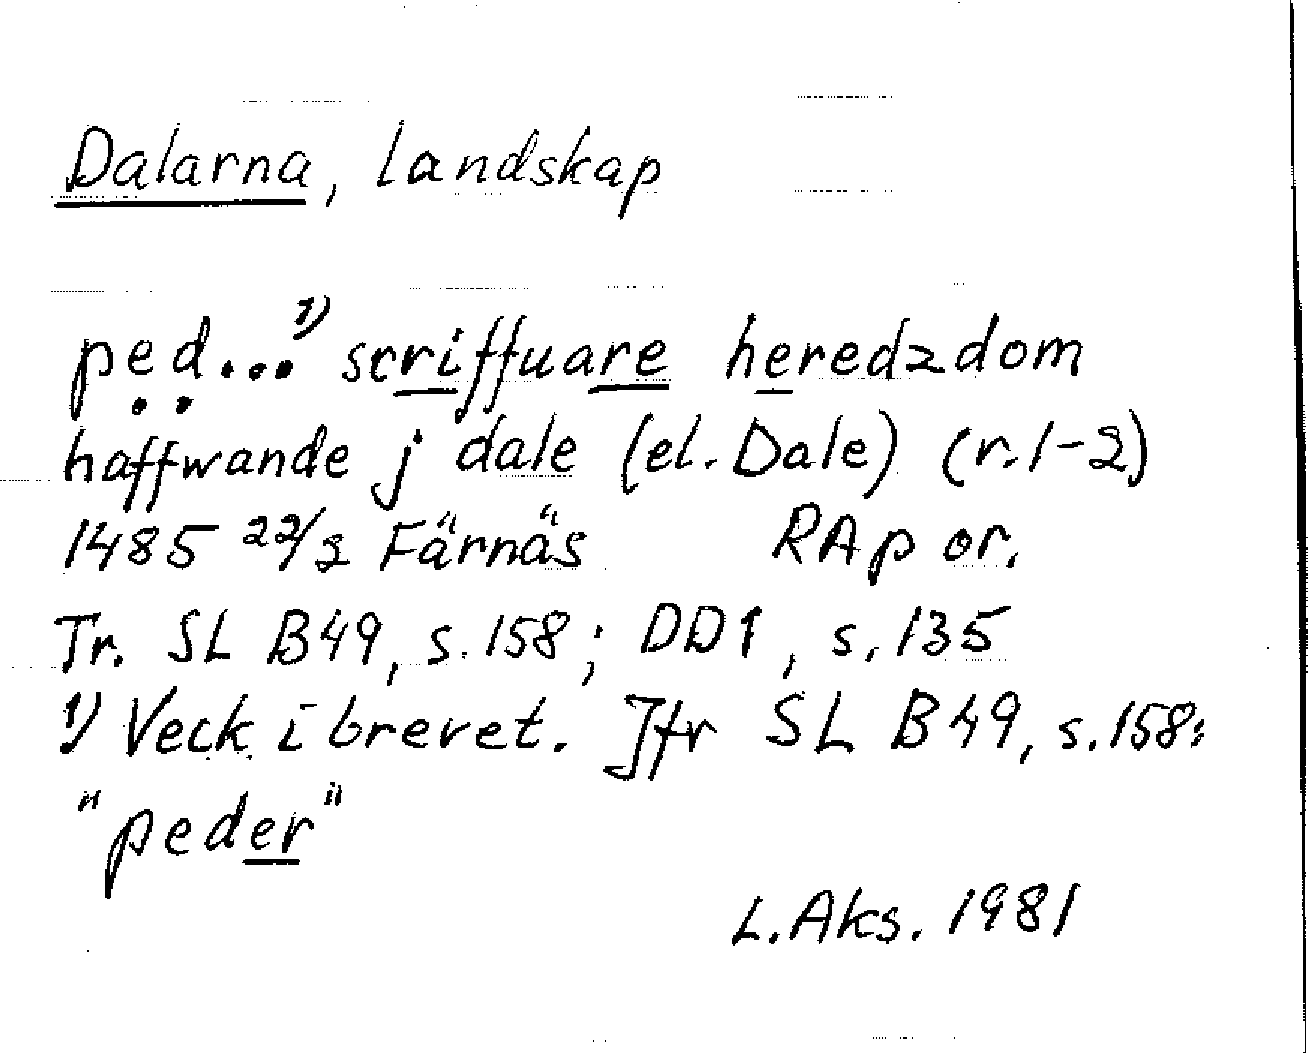 Dalarna, landskap
ped...1) scriffuare heredzdom
haffwande j dale (el. Dale) (r.1-2)
1485 22/2 Färnäs RAp or.
Tr. SL B49, s.158; DD1, s.135
1) Veck i brevet. Jfr SL B49, s.158:
"peder"
L.Aks. 1981